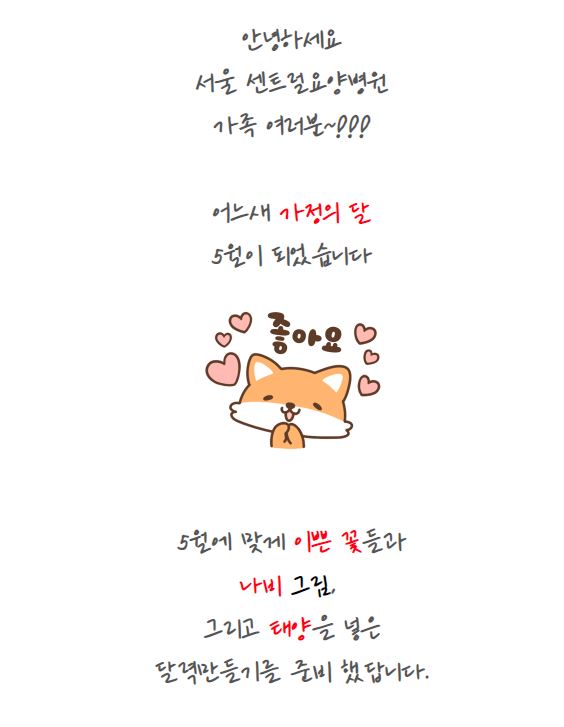 안녕하세요
서울 센트럴요양병원
가족 여러분~!!!
어느새 가정의 달
5월이 되었습니다
좋아요
5월에 맞게 이쁜 꽃들과
나비 그림,
그리고 태양을 넣은
달력만들기를 준비 했답니다.